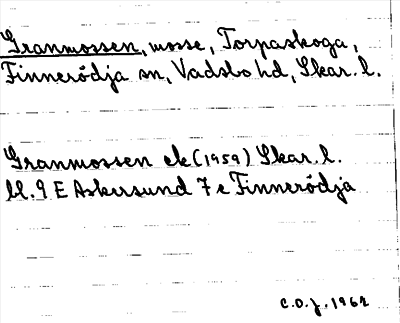 Granmossen, mosse, Torpaskoga,
Finnerödja sn, Vadsbo hd, Skar. l.
Granmossen ek (1959) Skar. l.
bl. 9 E Askersund 7 e Finnerödja
C.O.J. 1962